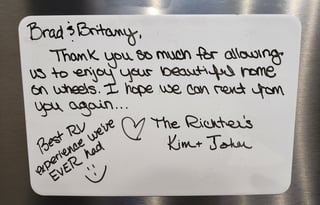 Brad & Britany,
Thank you so much for allowing
us to enjoy your beautiful home
on wheels. I hope we can rent from
you again...
Best RV
experience we've
EVER had
The Richter's
Kim + John